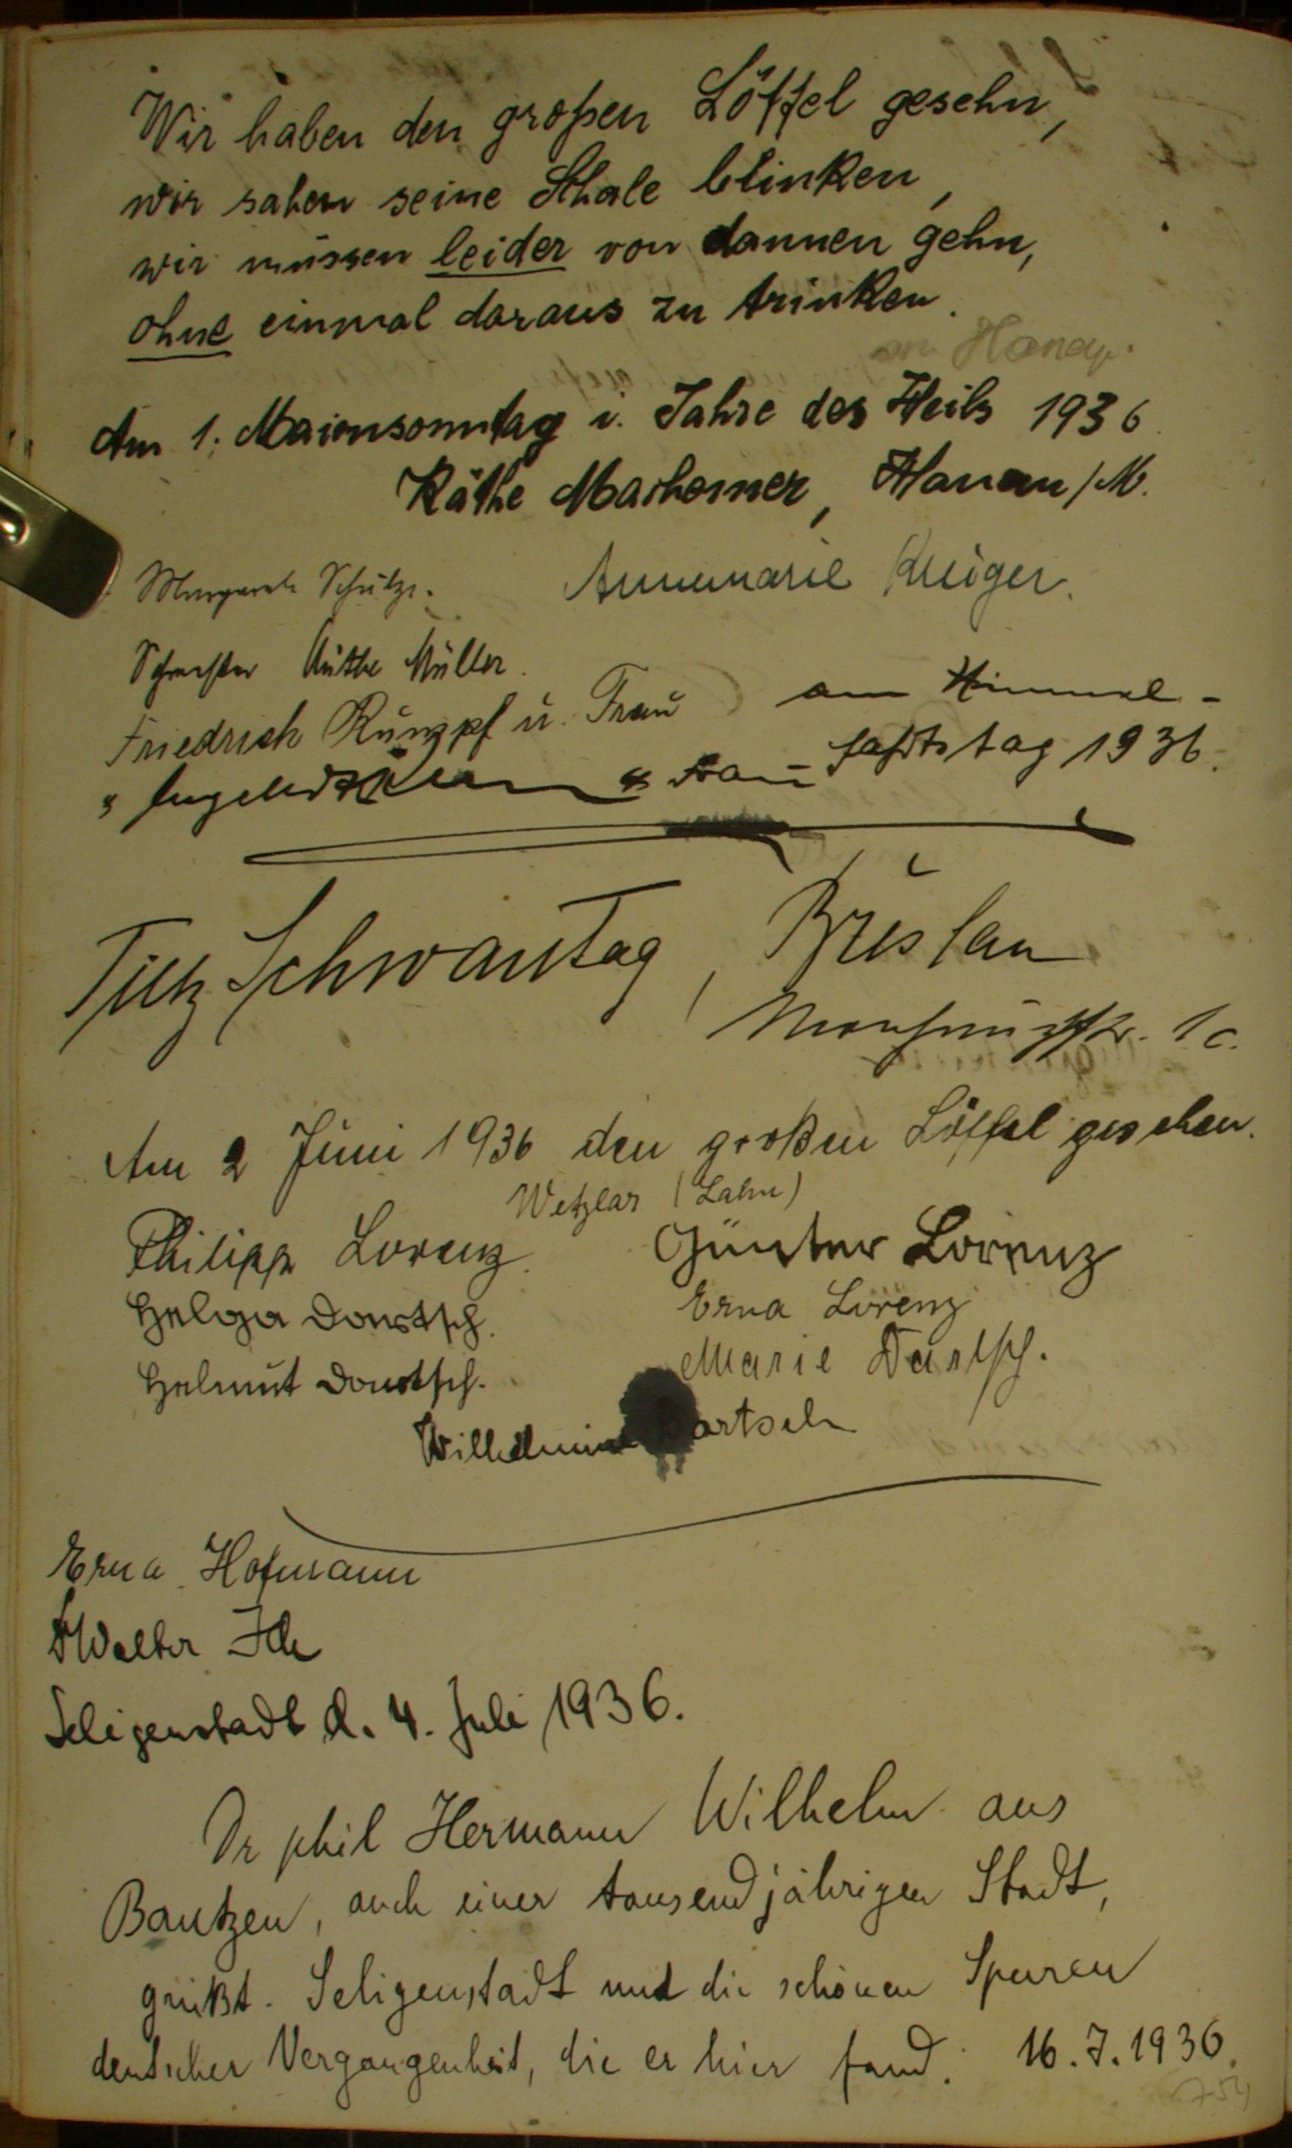 Wir haben den großen Löffel gesehn,
wir sahen seine Schale blinken,
wir müssen leider von dannen gehn,
ohne einmal daraus zu trinken.
Am 1. Maiensonntag i. Jahre des Heils 1936.
Käthe Marhemer, Hanau/M.
Schütz.
Annemarie Krüger.
Schwester Käthe Müller.
Friedrich Rumpf u. Frau
am Himmel-
fahrtstag 1936.
u Frau
Schwantag, Breslau
1c.
Am 2 Juni 1936 den großen Löffel gesehen.
Wetzlar (Lahn)
Philipp Lorenz.
Günter Lorenz
Helga Dartsch.
Erna Lorenz
Helmut Dartsch.
Marie Dartsch.
Wilhelmine Dartsch
Erna Hofmann
Walter
Seligenstadt d. 4. Juli 1936.
Dr phil Hermann Wilhelm aus
Bautzen, auch einer tausendjährigen Stadt,
grüßt Seligenstadt und die schönen Spuren
deutscher Vergangenheit, die er hier fand. 16.7.1936.